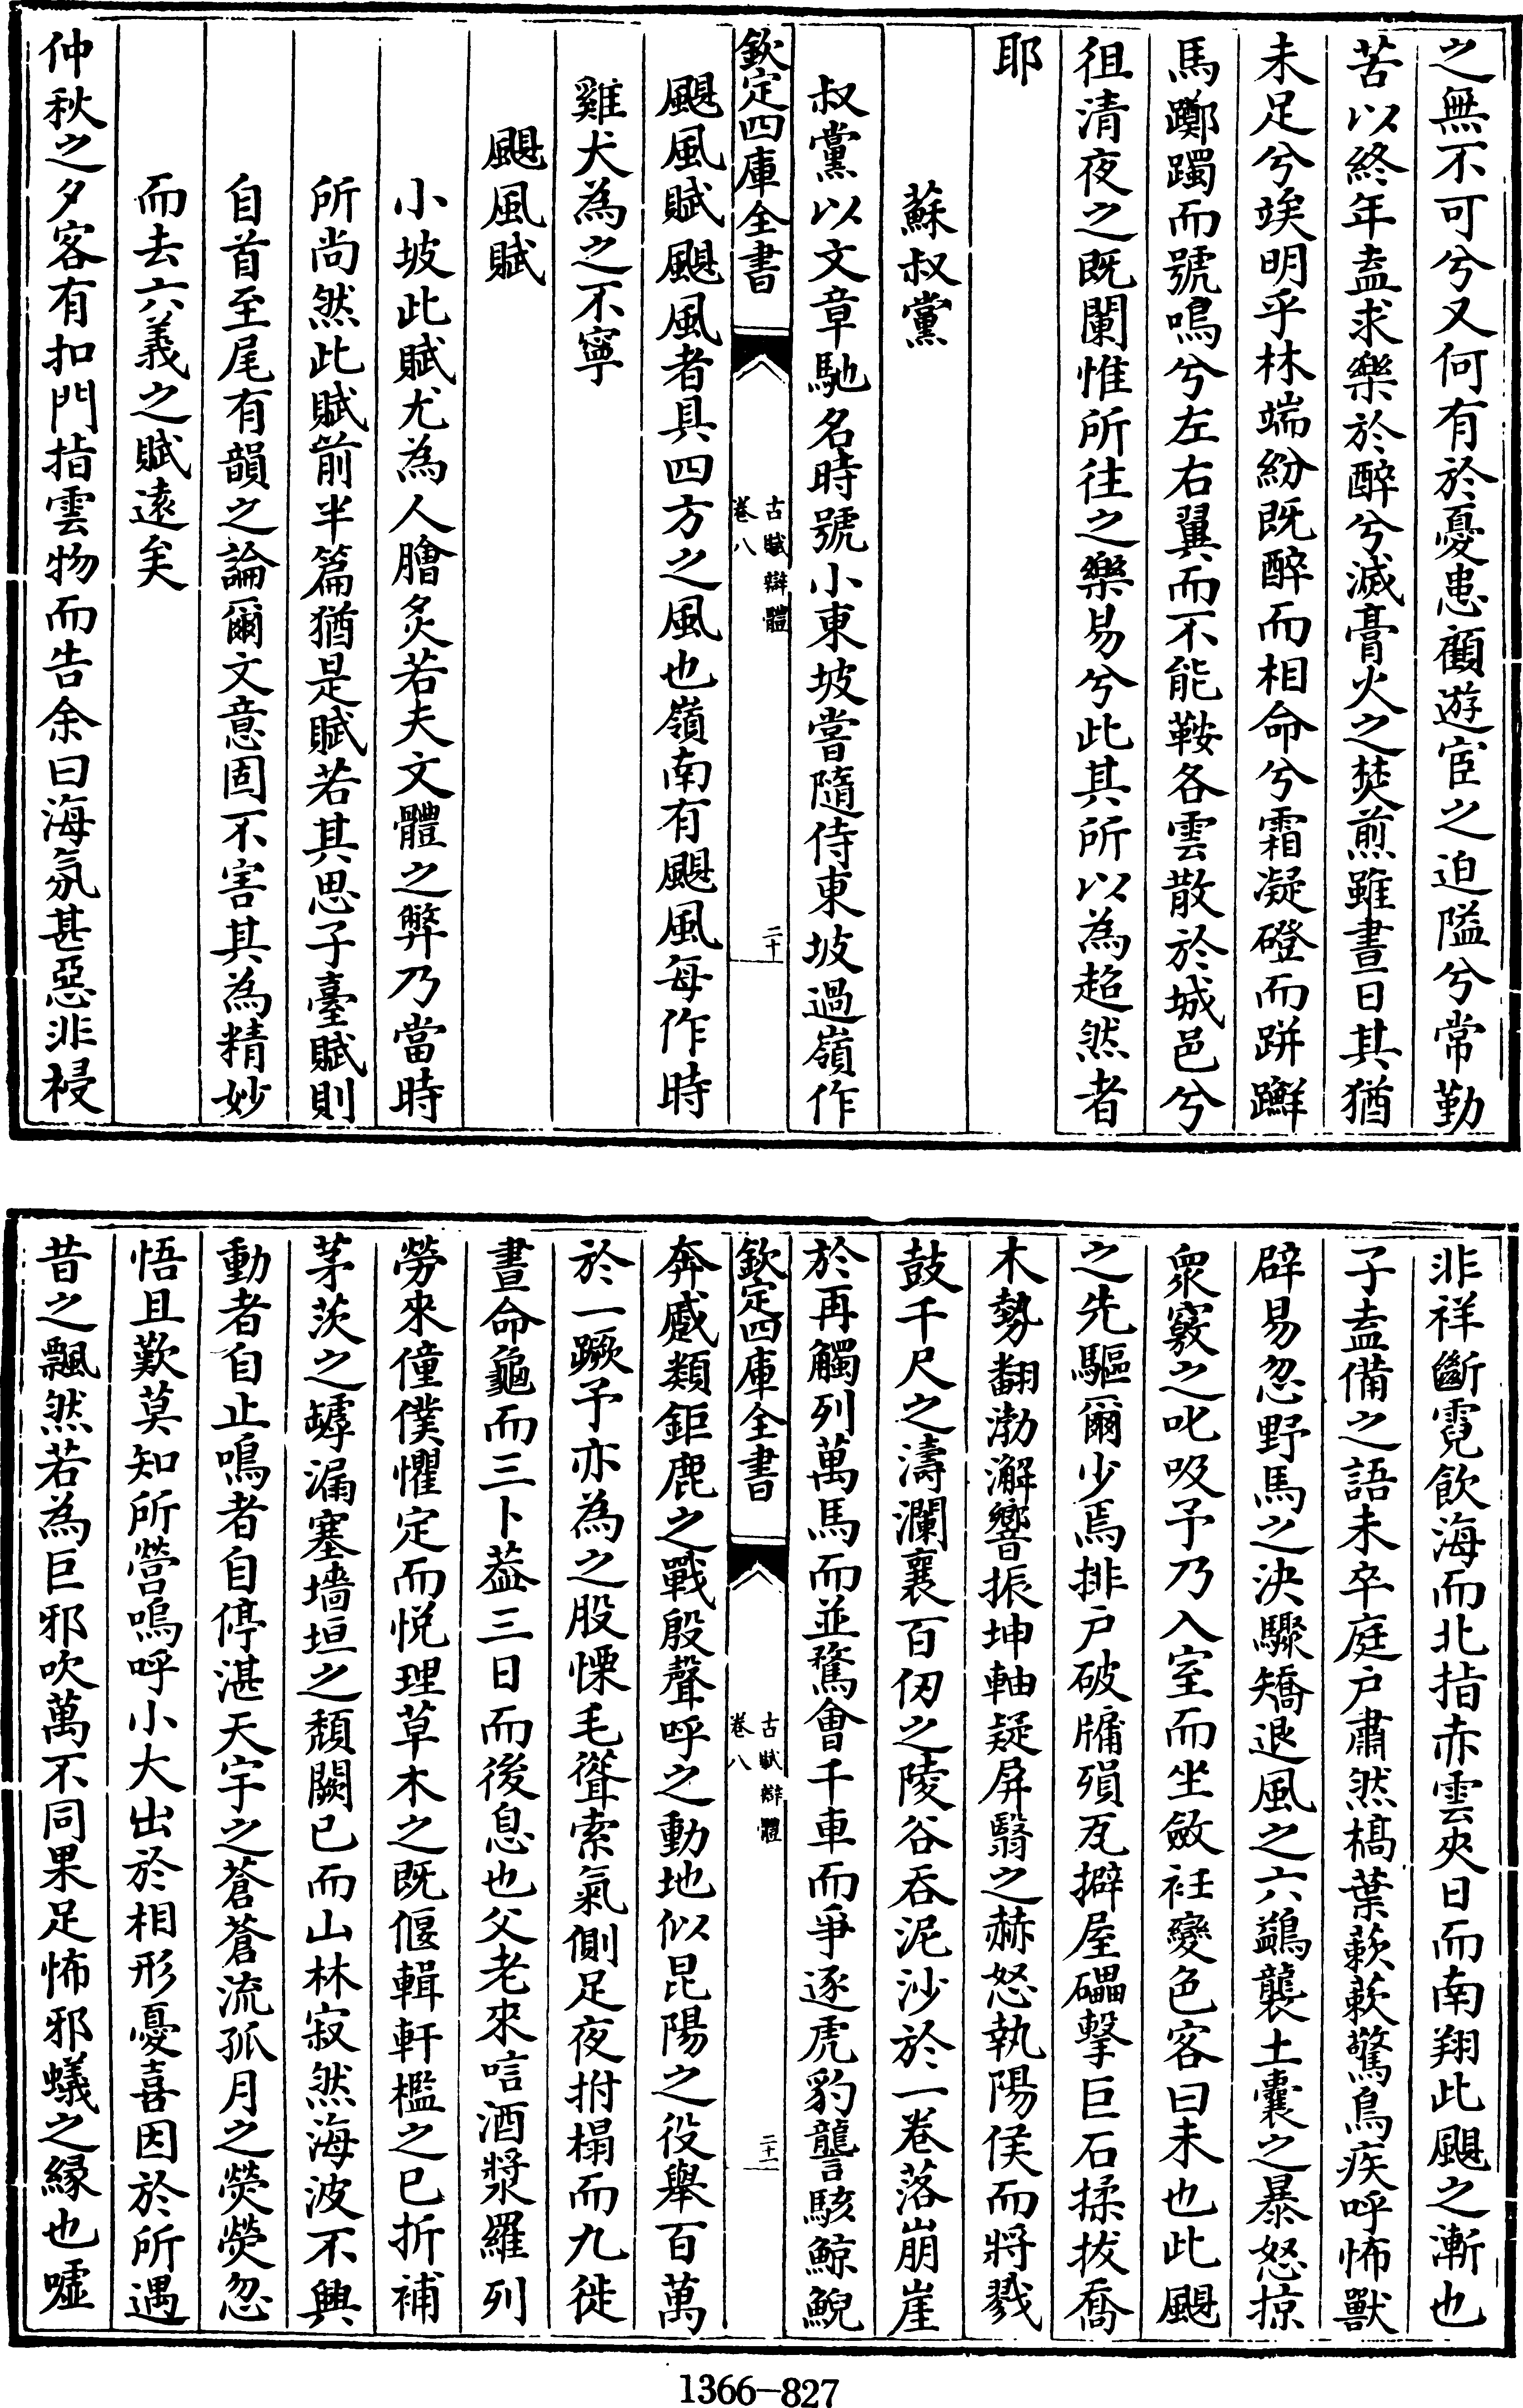 之無不可兮又何有於憂患顧遊宦之迫隘兮常勤
苦以終年盍求樂於醉兮滅膏火之焚煎雖晝日其猶
未足兮竢明乎林端紛既醉而相命兮霜凝磴而跰躚
馬躑躅而號鳴兮左右翼而不能鞍各雲散於城邑兮
徂清夜之既闌惟所往之樂易兮此其所以為超然者
耶
蘇叔黨
叔黨以文章馳名時號小東坡嘗隨侍東坡過嶺作
欽定四庫全書
古賦辯體
卷八
二十
颶風賦颶風者具四方之風也嶺南有颶風每作時
雞犬為之不寧
颶風賦
小坡此賦尤為人膾炙若夫文體之弊乃當時
所尚然此賦前半篇猶是賦若其思子臺賦則
自首至尾有韻之論爾文意固不害其為精妙
而去六義之賦遠矣
仲秋之夕客有扣門指雲物而告余曰海氛甚惡非祲
非祥斷霓飲海而北指赤雲夾日而南翔此颶之漸也
子盍備之語未卒庭户肅然槁葉蔌蔌驚鳥疾呼怖獸
辟易忽野馬之決驟矯退風之六鷁襲土囊之暴怒掠
衆竅之叱吸予乃入室而坐斂衽變色客曰未也此颶
之先驅爾少焉排户破牖殞瓦擗屋礧擊巨石揉拔喬
木勢翻渤澥響振坤軸疑屏翳之赫怒執陽侯而將戮
鼓千尺之濤瀾襄百仞之陵谷吞泥沙於一卷落崩崖
於再觸列萬馬而並騖會千車而爭逐虎豹讋駭鯨鯢
欽定四庫全書
古賦辯體
卷八
二十一
奔蹙類鉅鹿之戰殷聲呼之動地似昆陽之役舉百萬
於一蹶予亦為之股慄毛聳索氣側足夜拊榻而九徙
晝命龜而三卜葢三日而後息也父老來唁酒漿羅列
勞來僮僕懼定而悦理草木之既偃輯軒檻之已折補
茅茨之罅漏塞墻垣之頹闕已而山林寂然海波不興
動者自止鳴者自停湛天宇之蒼蒼流孤月之熒熒忽
悟且歎莫知所營嗚呼小大出於相形憂喜因於所遇
昔之飄然若為巨邪吹萬不同果足怖邪蟻之緣也噓
1366-827